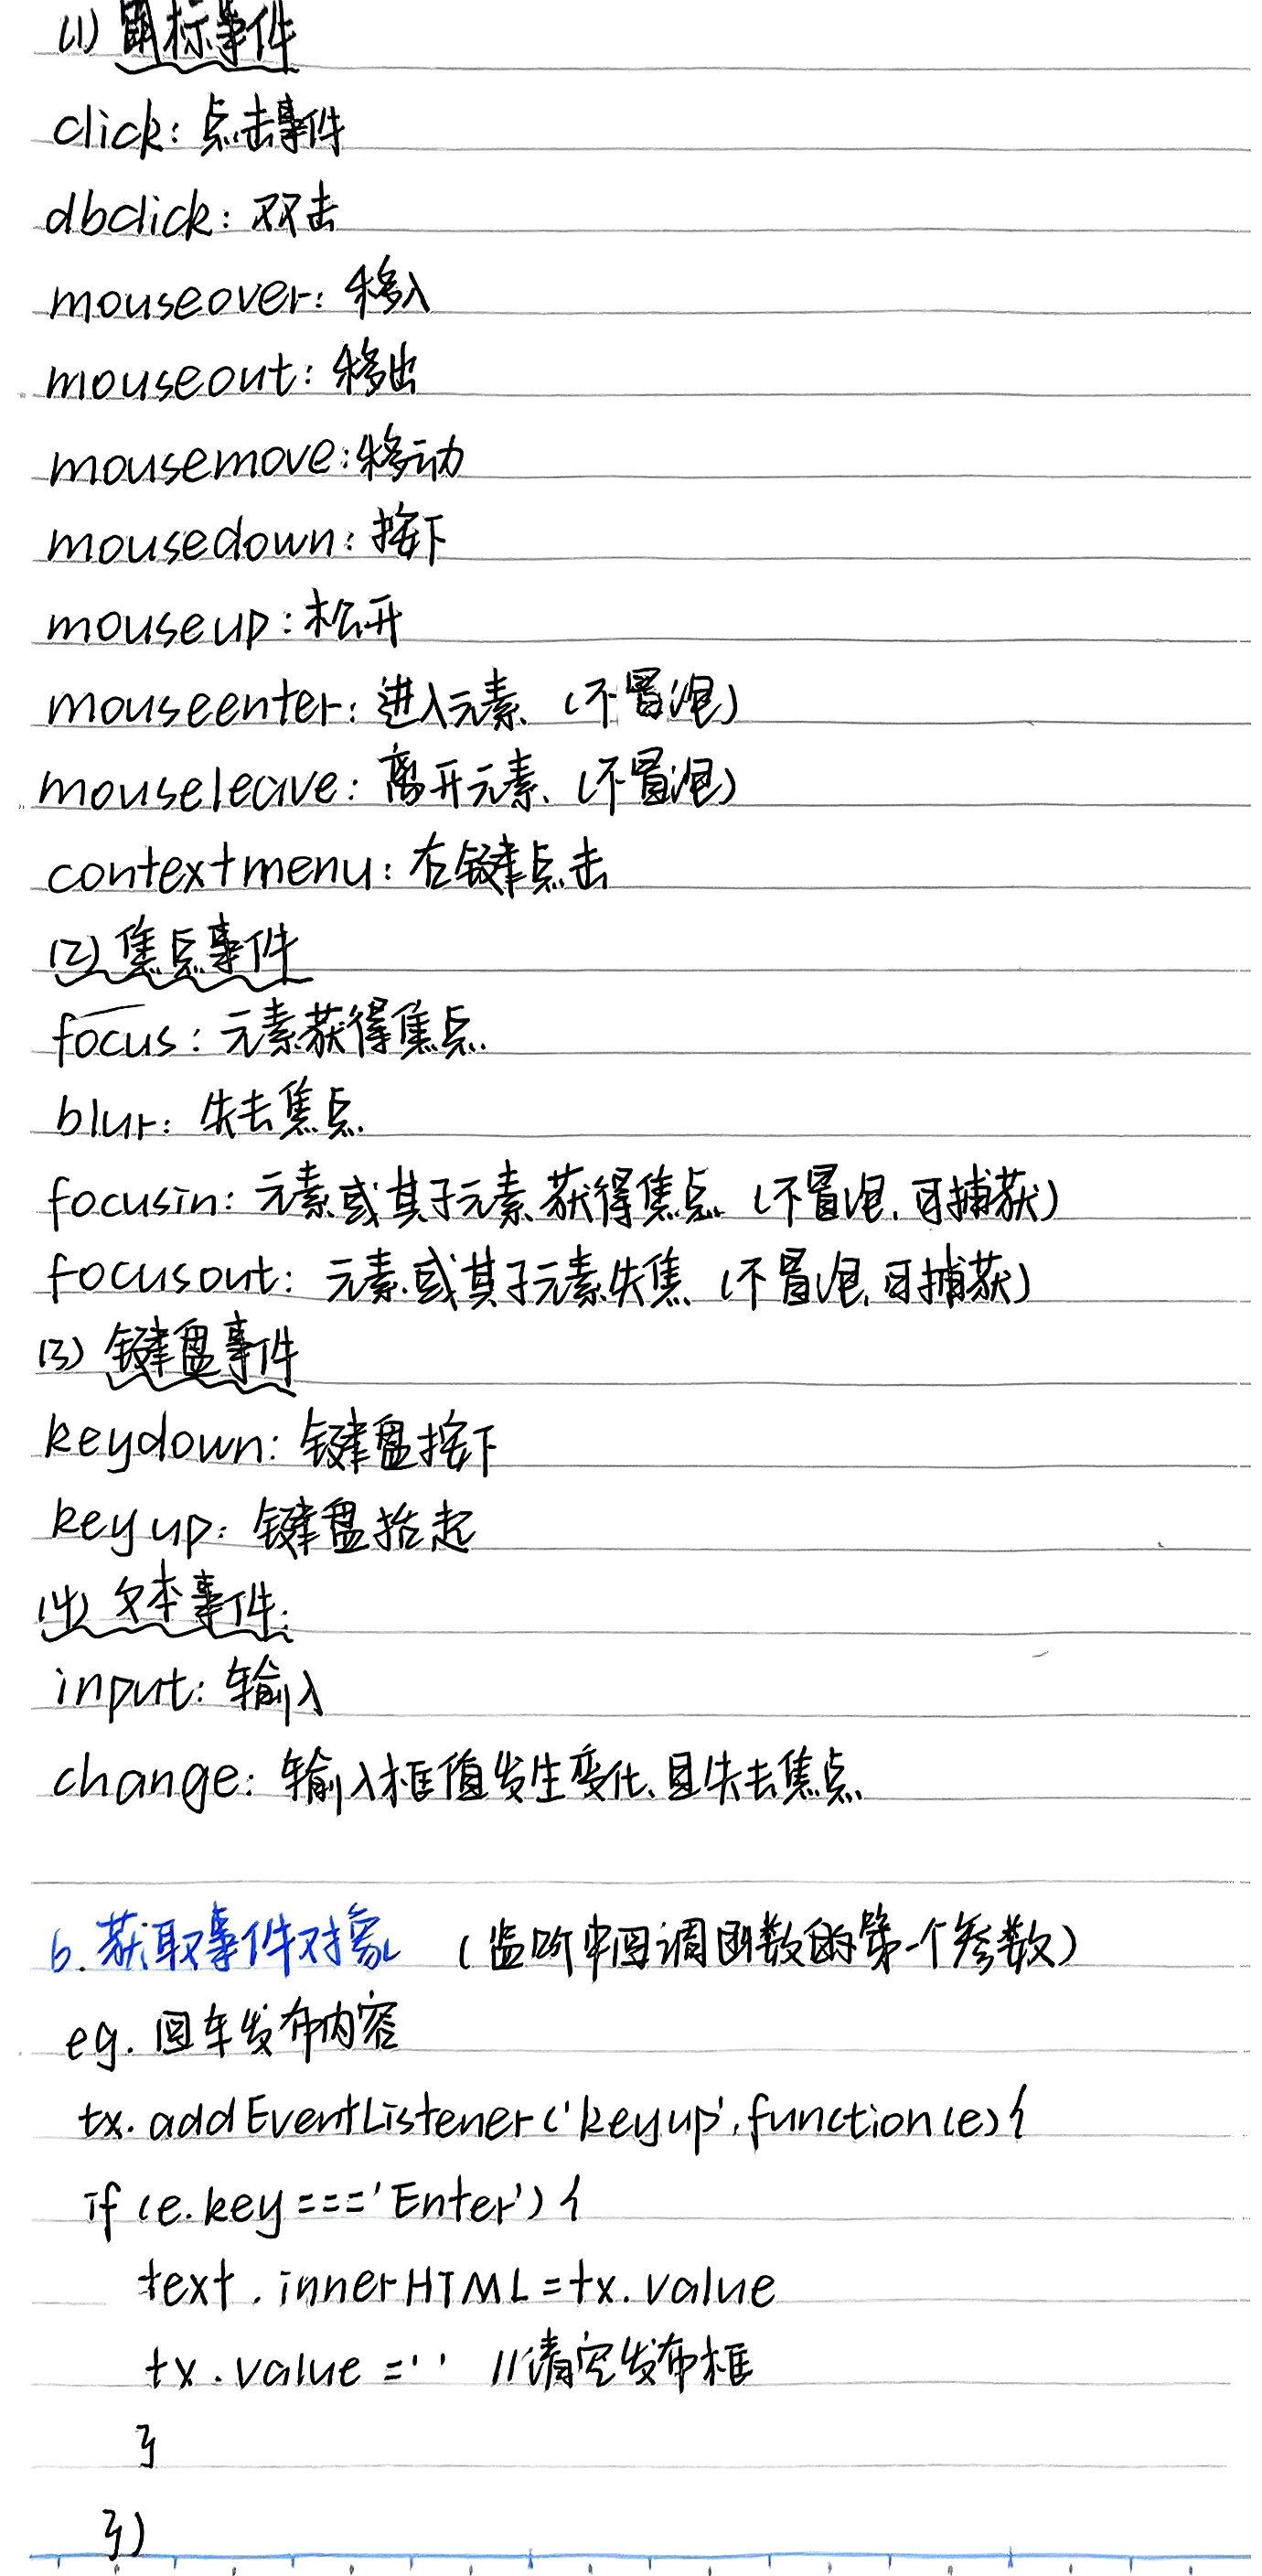 (1) 鼠标事件
click: 点击事件
dbclick: 双击
mouseover: 移入
mouseout: 移出
mousemove: 移动
mousedown: 按下
mouseup: 松开
mouseenter: 进入元素 (不冒泡)
mouseleave: 离开元素 (不冒泡)
contextmenu: 右键点击
(2) 焦点事件
focus: 元素获得焦点
blur: 失去焦点
focusin: 元素或其子元素获得焦点 (不冒泡,可捕获)
focusout: 元素或其子元素失焦 (不冒泡,可捕获)
(3) 键盘事件
keydown: 键盘按下
keyup: 键盘抬起
(4) 文本事件:
input: 输入
change: 输入框值发生变化、且失去焦点
6. 获取事件对象 (监听中回调函数的第一个参数)
eg. 回车发布内容
tx.addEventListener('keyup',function(e){
if(e.key==='Enter'){
text.innerHTML=tx.value
tx.value='' //清空发布框
}
})